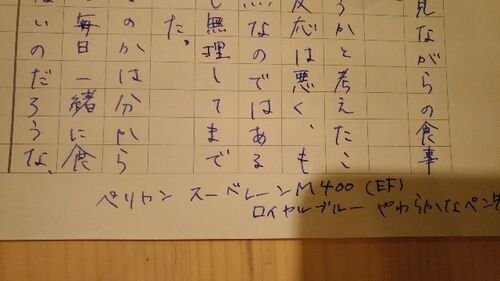 見ながらの食事
ろかと考えたこ
反応は悪く、も
なのではある
無理してまで
た。
のかは分から
毎日一緒に食
いのだろうな、
ペリカン スーベレーンM400 (EF)
ロイヤルブルー やわらかなペン